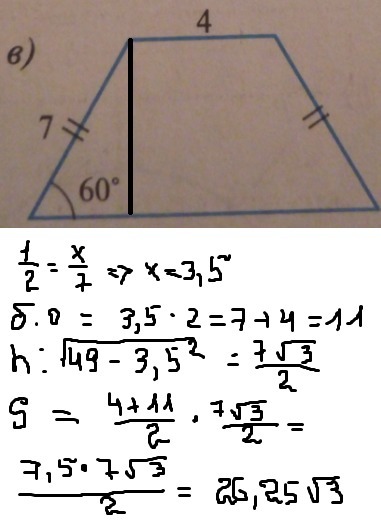 4
в)
7
60°
1/2 = x/7 => x = 3,5
б.о = 3,5 · 2 = 7 + 4 = 11
h: √49 - 3,5² = 7√3/2
S = 4+11/2 · 7√3/2 =
7,5 · 7√3/2 = 26,25√3